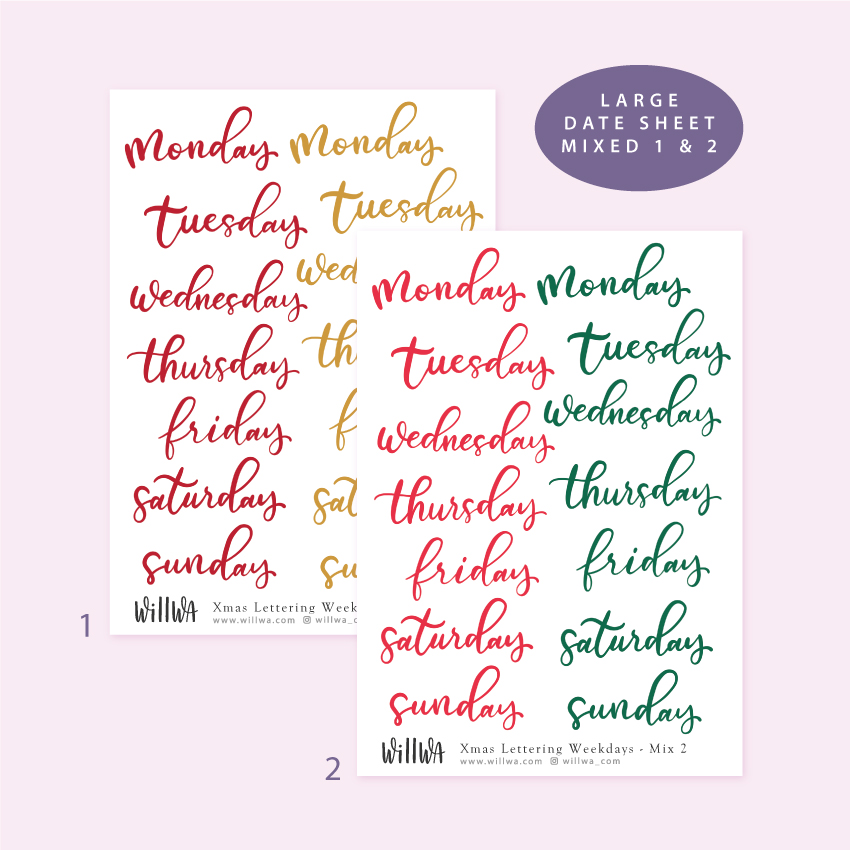 LARGE
DATE SHEET
MIXED 1 & 2
monday
tuesday
wednesday
thursday
friday
saturday
sunday
monday
tuesday
wed
th
f
sat
su
willwa
Xmas Lettering Weekd
www.willwa.com willwa_co
1
monday
tuesday
wednesday
thursday
friday
saturday
sunday
monday
tuesday
wednesday
thursday
friday
saturday
sunday
willwa
Xmas Lettering Weekdays - Mix 2
www.willwa.com willwa_com
2